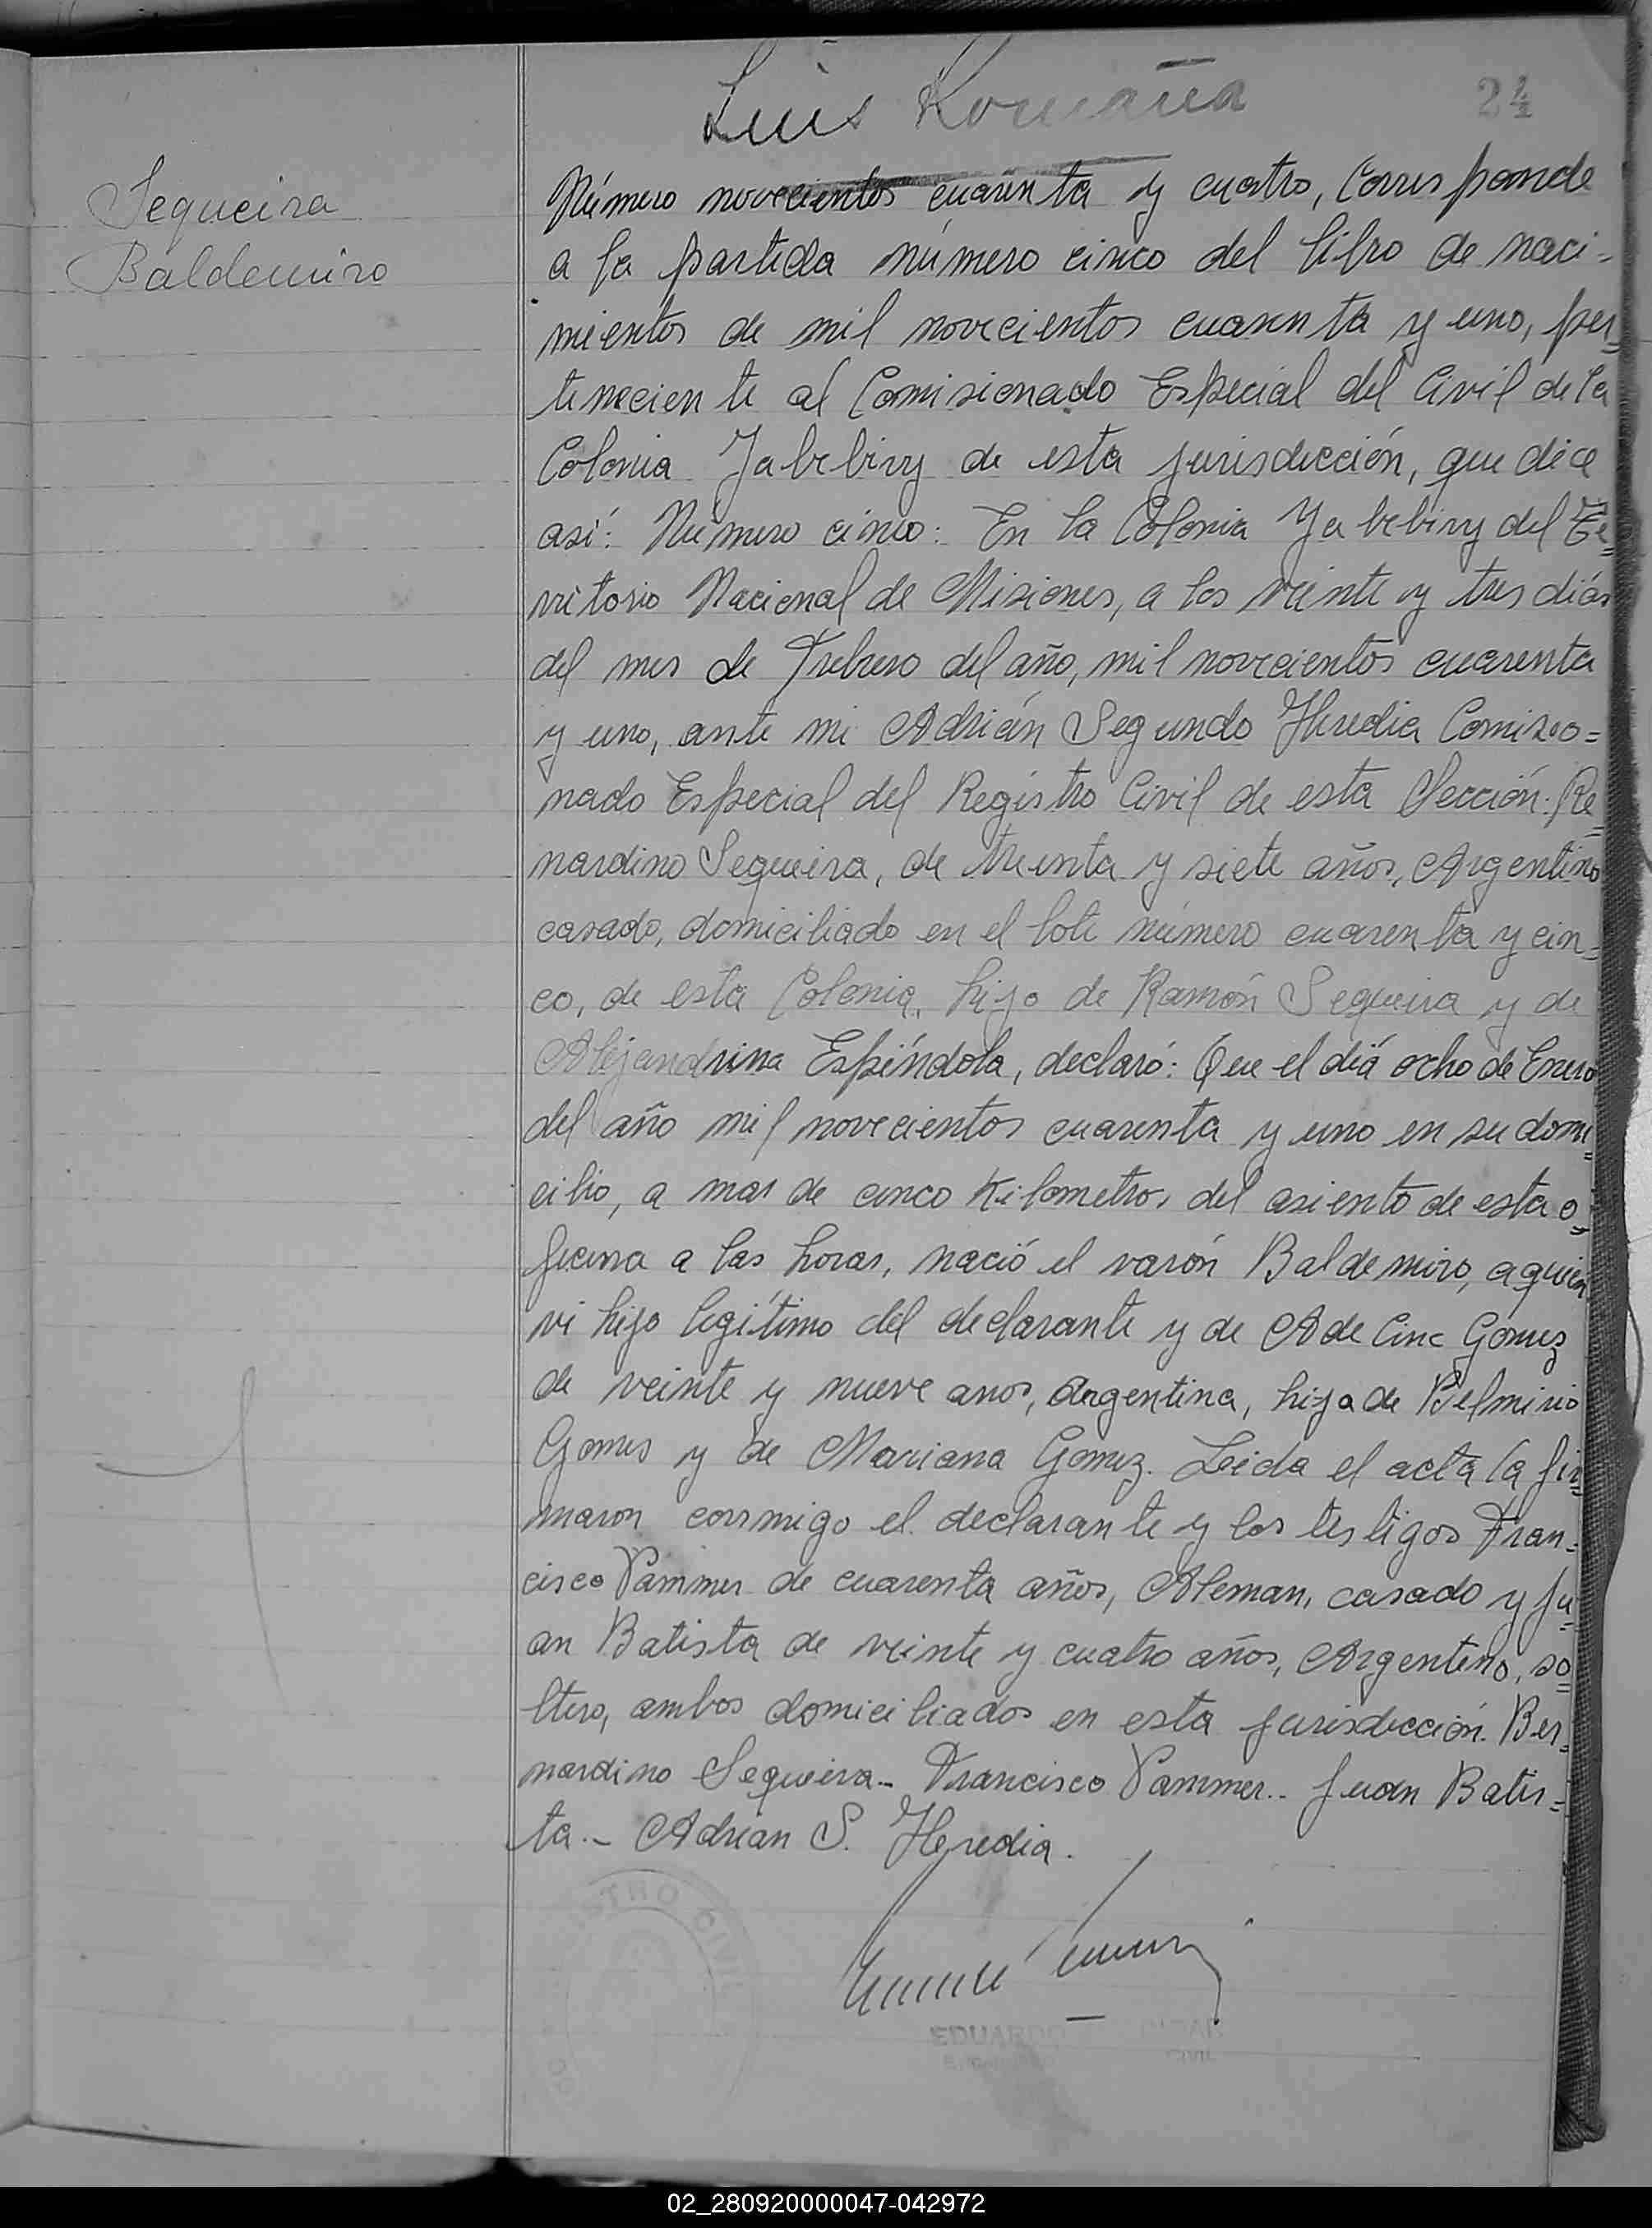 Luis Romaña
24
Sequeira
Baldemiro
Número novecientos cuarenta y cuatro, Corresponde
a la partida número cinco del libro de naci-
mientos de mil novecientos cuarenta y uno, per=
teneciente al Comisionado Especial del Civil de la
Colonia Yabebiry de esta jurisdicción, que dice
así: Número cinco: En la Colonia Yabebiry del Te=
rritorio Nacional de Misiones, a los veinte y tres días
del mes de Febrero del año, mil novecientos cuarenta
y uno, ante mi Adrián Segundo Heredia Comisio=
nado Especial del Registro Civil de esta Sección. Be=
nardino Sequeira, de treinta y siete años, Argentino
casado, domiciliado en el lote número cuarenta y cin=
co, de esta Colonia, hijo de Ramón Sequeira y de
Alejandrina Espíndola, declaró: Que el día ocho de Enero
del año mil novecientos cuarenta y uno en su domi=
cilio, a mas de cinco Kilometros del asiento de esta o=
ficina a las horas, nació el varón Baldemiro, a quien
vi hijo legítimo del declarante y de Adelina Gómez
de veinte y nueve anos, Argentina, hija de Belmirio
Gomes y de Mariana Gomez. Leida el acta la fir=
maron conmigo el declarante y los testigos Fran=
cisco Pammer de cuarenta años, Aleman, casado y Ju=
an Batista de veinte y cuatro años, Argentino, so=
ltero, ambos domiciliados en esta jurisdicción. Ber=
nardino Sequeira.- Francisco Pammer.- Juan Batis=
ta.- Adrian S. Heredia.
EDUARDO
CIVIL
02_280920000047-042972